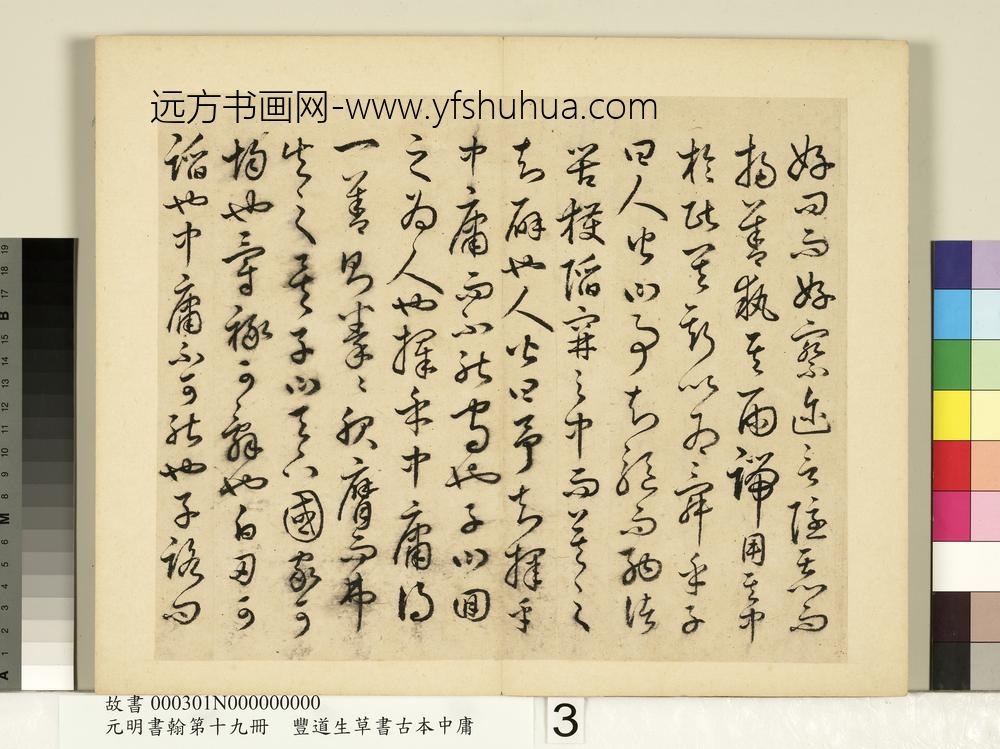 远方书画网-www.yfshuhua.com
好問而好察邇言隱惡而
揚善執其兩端用其中
於民其斯以為舜乎子
曰人皆曰予知驅而納諸
罟擭陷穽之中而莫之
知辟也人皆曰予知擇乎
中庸而不能守也子曰回
之為人也擇乎中庸得
一善則拳〻服膺而弗
失之矣子曰天下國家可
均也爵祿可辭也白刃可
蹈也中庸不可能也子路問
故書 000301N000000000
元明書翰第十九冊 豐道生草書古本中庸
3
A 1 2 3 4 5 6 M 8 9 10 11 12 13 14 15 B 17 18 19